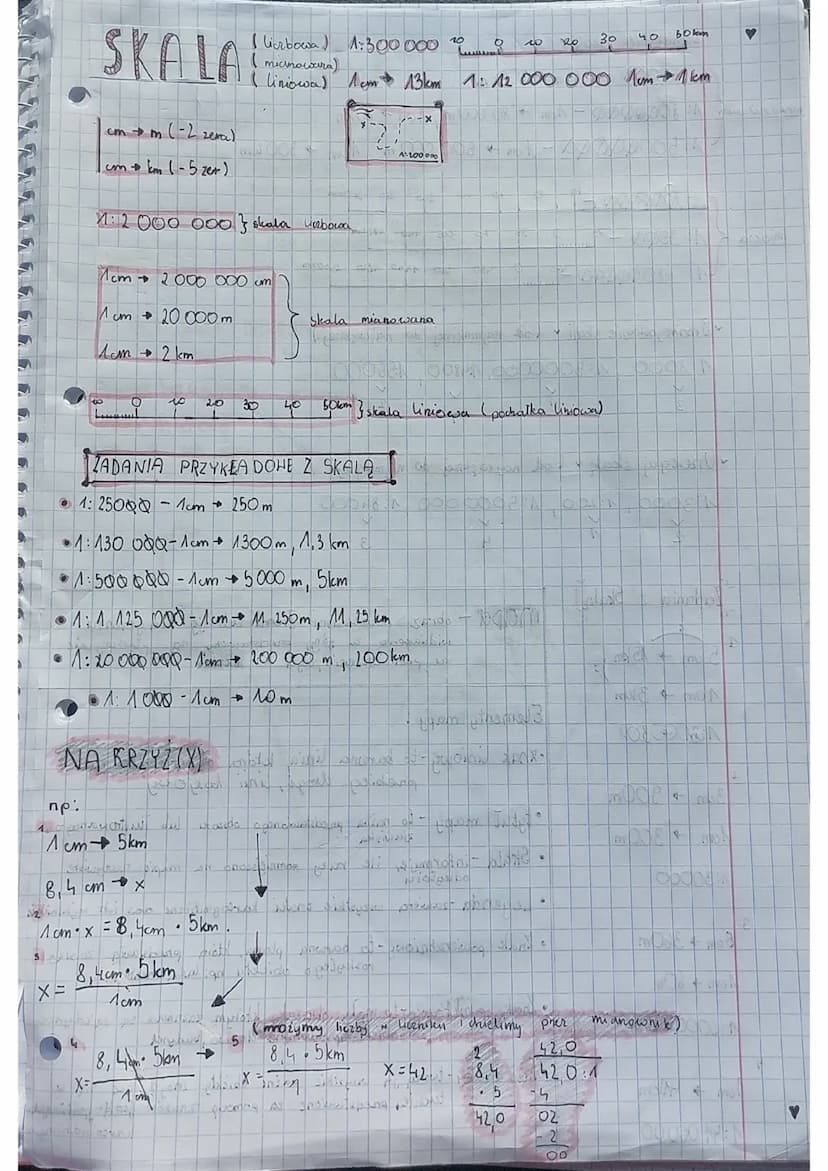 SKALA (liczbowa) 1:300 000 10 0 10 20 30 40 50km
(mianowana)
(liniowa) 1cm → 13km 1:12 000 000 1cm → 1km
cm → m (-2 zera)
x x
1:200 000
cm → km (-5 zer)
1:2 000 000 } skala liczbowa
1cm → 2 000 000 cm
1cm → 20 000 m } skala mianowana
1cm → 2 km
10 0 10 20 30 40 50km } skala liniowa (podziałka liniowa)
ZADANIA PRZYKŁADOWE Z SKALĄ
• 1:25000 - 1cm → 250 m
• 1:130 000 - 1cm → 1300m, 1,3 km
• 1:500 000 - 1cm → 5 000 m, 5km
• 1:1 125 000 - 1cm → 11 250m, 11,25 km
• 1:20 000 000 - 1cm → 200 000 m, 200km
• 1:1 000 - 1cm → 10 m
NA KRZYŻ (X)
np:
1.
1cm → 5km
8,4 cm → x
2.
1cm · x = 8,4cm · 5km.
3.
x = 8,4cm · 5km
1cm
(mnożymy liczby w liczniku i dzielimy przez mianownik)
4. x = 8,4cm · 5km → 5. x = 8,4 · 5km x = 42
1cm
2
8,4
· 5
42,0
42,0
42,0 : 1
-4
02
-2
00